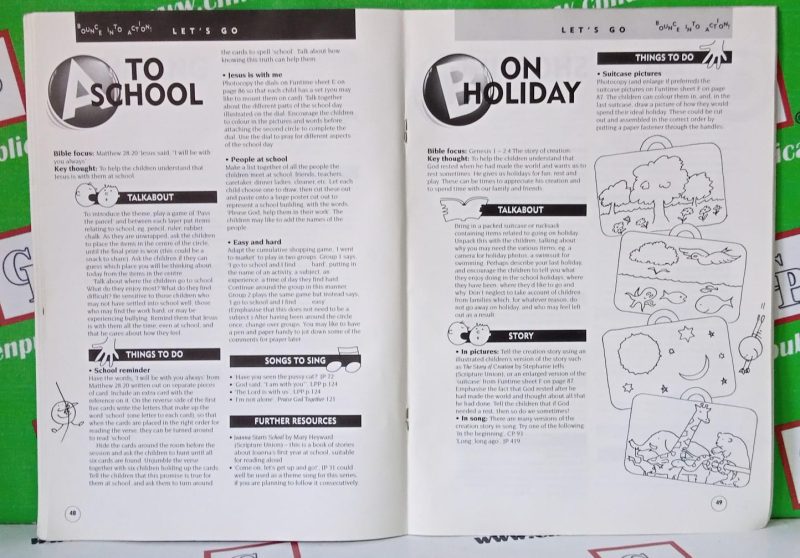 BOUNCE INTO ACTION!
LET'S GO
A TO
SCHOOL
Bible focus: Matthew 28:20 'Jesus said, 'I will be with
you always'.
Key thought: To help the children understand that
Jesus is with them at school.
TALKABOUT
To introduce the theme, play a game of 'Pass
the parcel' and between each layer put items
relating to school, eg, pencil, ruler, rubber,
chalk. As they are unwrapped, ask the children
to place the items in the centre of the circle,
until the final prize is won (this could be a
snack to share). Ask the children if they can
guess which place you will be thinking about
today from the items in the centre.
Talk about where the children go to school.
What do they enjoy most? What do they find
difficult? Be sensitive to those children who
may not have settled into school well, those
who may find the work hard, or may be
experiencing bullying. Remind them that Jesus
is with them all the time, even at school, and
that he cares about how they feel.
THINGS TO DO
• School reminder
Have the words, 'I will be with you always' from
Matthew 28:20 written out on separate pieces
of card. Include an extra card with the
reference on it. On the reverse side of the first
five cards write the letters that make up the
word 'school' (one letter to each card), so that
when the cards are placed in the right order for
reading the verse, they can be turned around
to read 'school'.
Hide the cards around the room before the
session and ask the children to hunt until all
six cards are found. Unjumble the verse
together with six children holding up the cards.
Tell the children that this promise is true for
them at school, and ask them to turn around
the cards to spell 'school'. Talk about how
knowing this truth can help them.
• Jesus is with me
Photocopy the dials on Funtime sheet E on
page 86 so that each child has a set (you may
like to mount them on card). Talk together
about the different parts of the school day
illustrated on the dial. Encourage the children
to colour in the pictures and words before
attaching the second circle to complete the
dial. Use the dial to pray for different aspects
of the school day.
• People at school
Make a list together of all the people the
children meet at school: friends, teachers,
caretaker, dinner ladies, cleaner, etc. Let each
child choose one to draw, then cut these out
and paste onto a large poster cut out to
represent a school building, with the words,
'Please God, help them in their work'. The
children may like to add the names of the
people.
• Easy and hard
Adapt the cumulative shopping game, 'I went
to market' to play in two groups. Group 1 says,
'I go to school and I find hard', putting in
the name of an activity, a subject, an
experience, a time of day they find hard.
Continue around the group in this manner.
Group 2 plays the same game but instead says,
'I go to school and I find easy'.
(Emphasise that this does not need to be a
subject.) After having been around the circle
once, change over groups. You may like to have
a pen and paper handy to jot down some of the
comments for prayer later.
SONGS TO SING
• 'Have you seen the pussy cat?' JP 72
• God said, 'I am with you'' LPP p.124
• 'The Lord is with us', LPP p.124
• 'I'm not alone', Praise God Together 121
FURTHER RESOURCES
• Joanna Starts School by Mary Hayward
(Scripture Union) – this is a book of stories
about Joanna's first year at school, suitable
for reading aloud.
• 'Come on, let's get up and go!', JP 31 could
well be used as a theme song for this series,
if you are planning to follow it consecutively.
48
LET'S GO
BOUNCE INTO ACTION!
B ON
HOLIDAY
Bible focus: Genesis 1 – 2:4 The story of creation.
Key thought: To help the children understand that
God rested when he had made the world and wants us to
rest sometimes. He gives us holidays for fun, rest and
play. These can be times to appreciate his creation and
to spend time with our family and friends.
TALKABOUT
Bring in a packed suitcase or rucksack
containing items related to going on holiday.
Unpack this with the children, talking about
why you may need the various items, eg, a
camera for holiday photos, a swimsuit for
swimming. Perhaps describe your last holiday,
and encourage the children to tell you what
they enjoy doing in the school holidays, where
they have been, where they'd like to go and
why. Don't neglect to take account of children
from families which, for whatever reason, do
not go away on holiday, and who may feel left
out as a result.
STORY
• In pictures: Tell the creation story using an
illustrated children's version of the story such
as The Story of Creation by Stephanie Jeffs
(Scripture Union), or an enlarged version of the
'suitcase' from Funtime sheet F on page 87.
Emphasise the fact that God rested after he
had made the world and thought about all that
he had done. Tell the children that if God
needed a rest, then so do we sometimes!
• In song: There are many versions of the
creation story in song. Try one of the following:
'In the beginning', CP 93
'Long, long ago', JP 419
THINGS TO DO
• Suitcase pictures
Photocopy (and enlarge if preferred) the
suitcase pictures on Funtime sheet F on page
87. The children can colour them in, and, in the
last suitcase, draw a picture of how they would
spend their ideal holiday. These could be cut
out and assembled in the correct order by
putting a paper fastener through the handles.
49